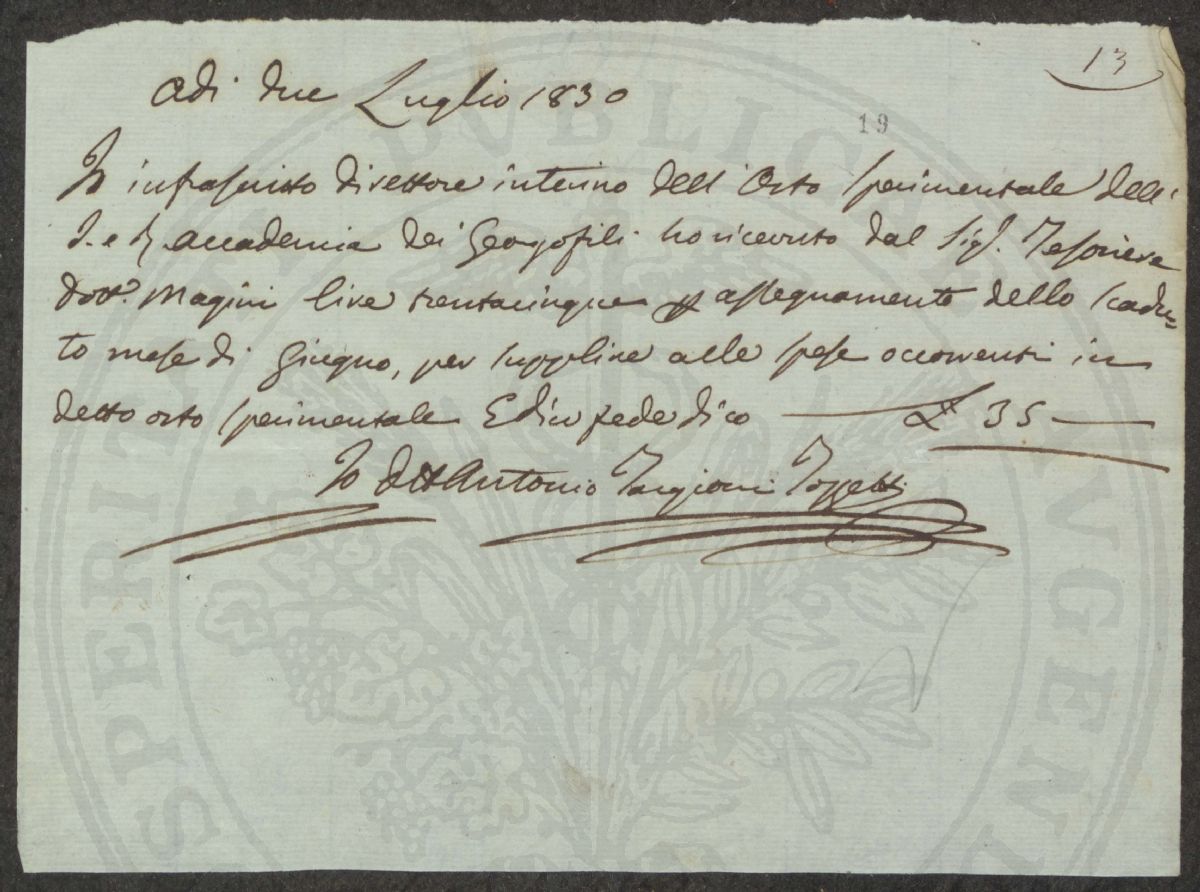 13
Adi due Luglio 1830
19
Io infrascritto direttore interino dell'Orto sperimentale dell'
I. e R. Accademia dei Georgofili ho ricevuto dal Sig.r Tesoriere
Dott.e Magini lire trentacinque p assegnamento dello scadu-
to mese di Giugno, per supplire alle spese occorrenti in
detto orto sperimentale E dico fede dico £ 35
Io Dott Antonio Targioni Tozzetti
PUBLICAE
AUGEN
SPERITATI